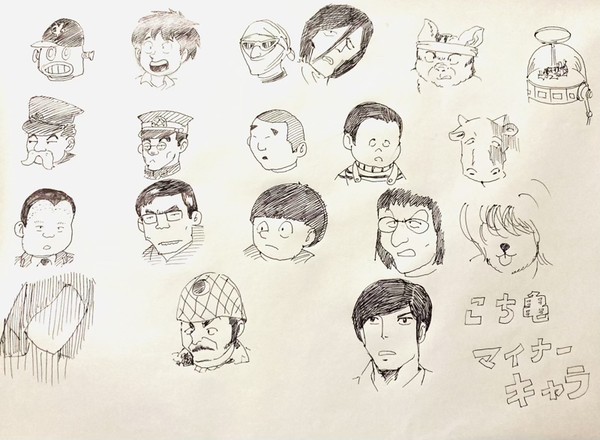 こち亀
マイナー
キャラ